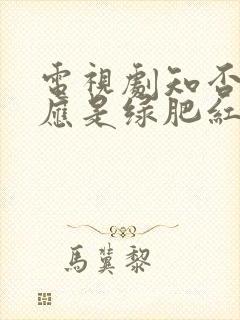 電視劇知否
應是绿肥紅
馬蓂黎